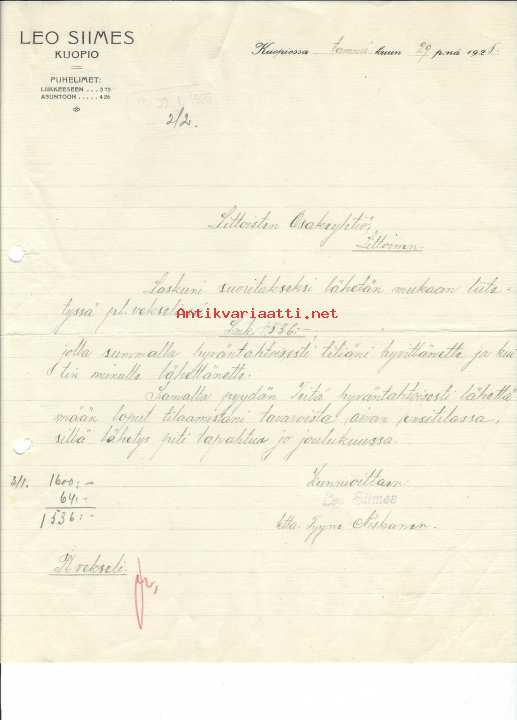 LEO SIIMES
KUOPIO
PUHELIMET:
LIIKKEESEEN . . . 3 75
ASUNTOON . . . . . 4 26
Kuopiossa tammi kuun 29 p:nä 192
2/2.
Littoisten Osakeyhtiö,
Littoinen.
Laskuni suoritukseksi lähetän mukaan liite-
tyssä pl. vekselissä
Antikvariaatti.net
Smk 1536:-
jolla summalla hyväntahtoisesti tiliäni hyvittänette ja kui
tin minulle lähettänette.
Samalla pyydän Teitä hyväntahtoisesti lähettä
mään loput tilaamistani tavaroista aivan ensitilassa,
sillä lähetys piti tapahtua jo joulukuussa.
1600:-
64:-
1536:-
Kunnioittaen
Leo Siimes
Niskanen.
vekseli.